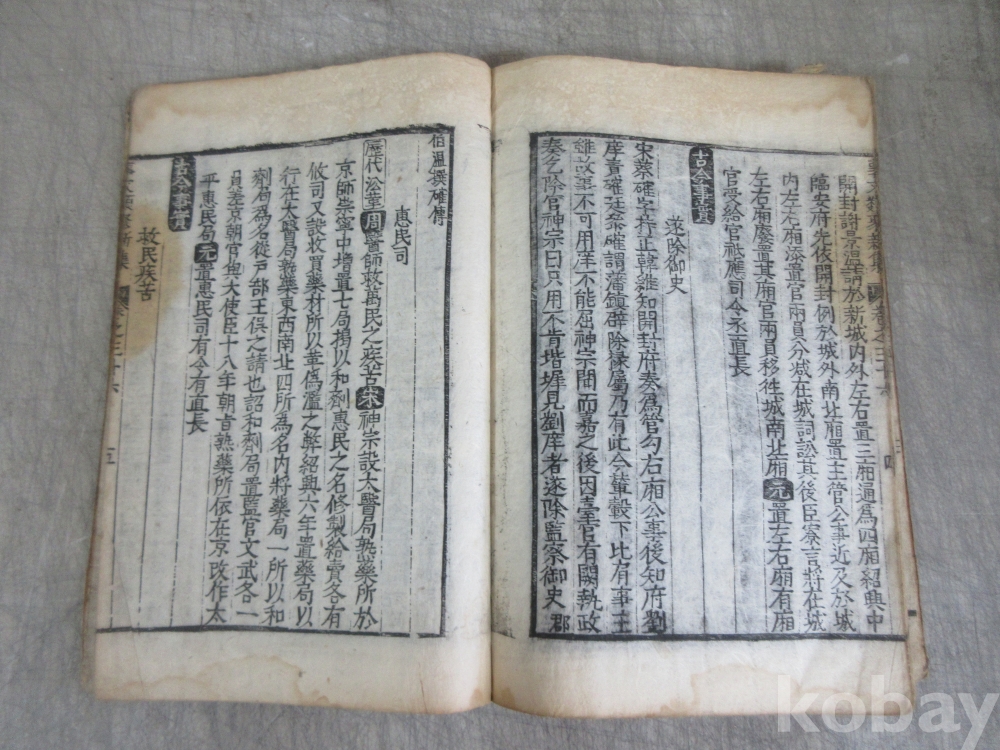 開封謝景溫請於新城內外左右置三廂通爲四廂紹興中
臨安府先依開封例於城外南北廂置主管公事近及於城
內左右廂添置官兩員分减在城詞訟其後臣寮言將在城
左右廂廢置其廂官兩員移徃城南北廂元置左右廂有廂
官受給官祗應司令丞直長
古今事實
遂除御史
宋蔡確字持正諱雜知開封府奏爲管勾右廂公事後知府劉
庠責確廷叅確謂藩鎮辟除掾屬乃有此今輦轂下比肩事主
雖故事不可用庠不能屈神宗聞而嘉之後因臺官有闕執政
奏乞除官神宗曰只用不肯堦墀見劉庠者遂除監察御史 郡
伯溫撰確傳
惠民司
歷代沿革周醫師救萬民之疾苦宋神宗設太醫局熟藥所於
京師崇寧中增置七局揭以和劑惠民之名修製給賣各有
攸司又設收買藥材所以革僞濫之弊紹興六年置藥局以
行在太醫局熟藥東西南北四所爲名內將藥局一所以和
劑局爲名從戶部王俁之請也詔和劑局置監官文武各一
員差京朝官與大使臣十八年朝旨熟藥所依在京改作太
平惠民局元置惠民司有令有直長
古今事實
救民疾苦
卷之三十六
四
五
kobay